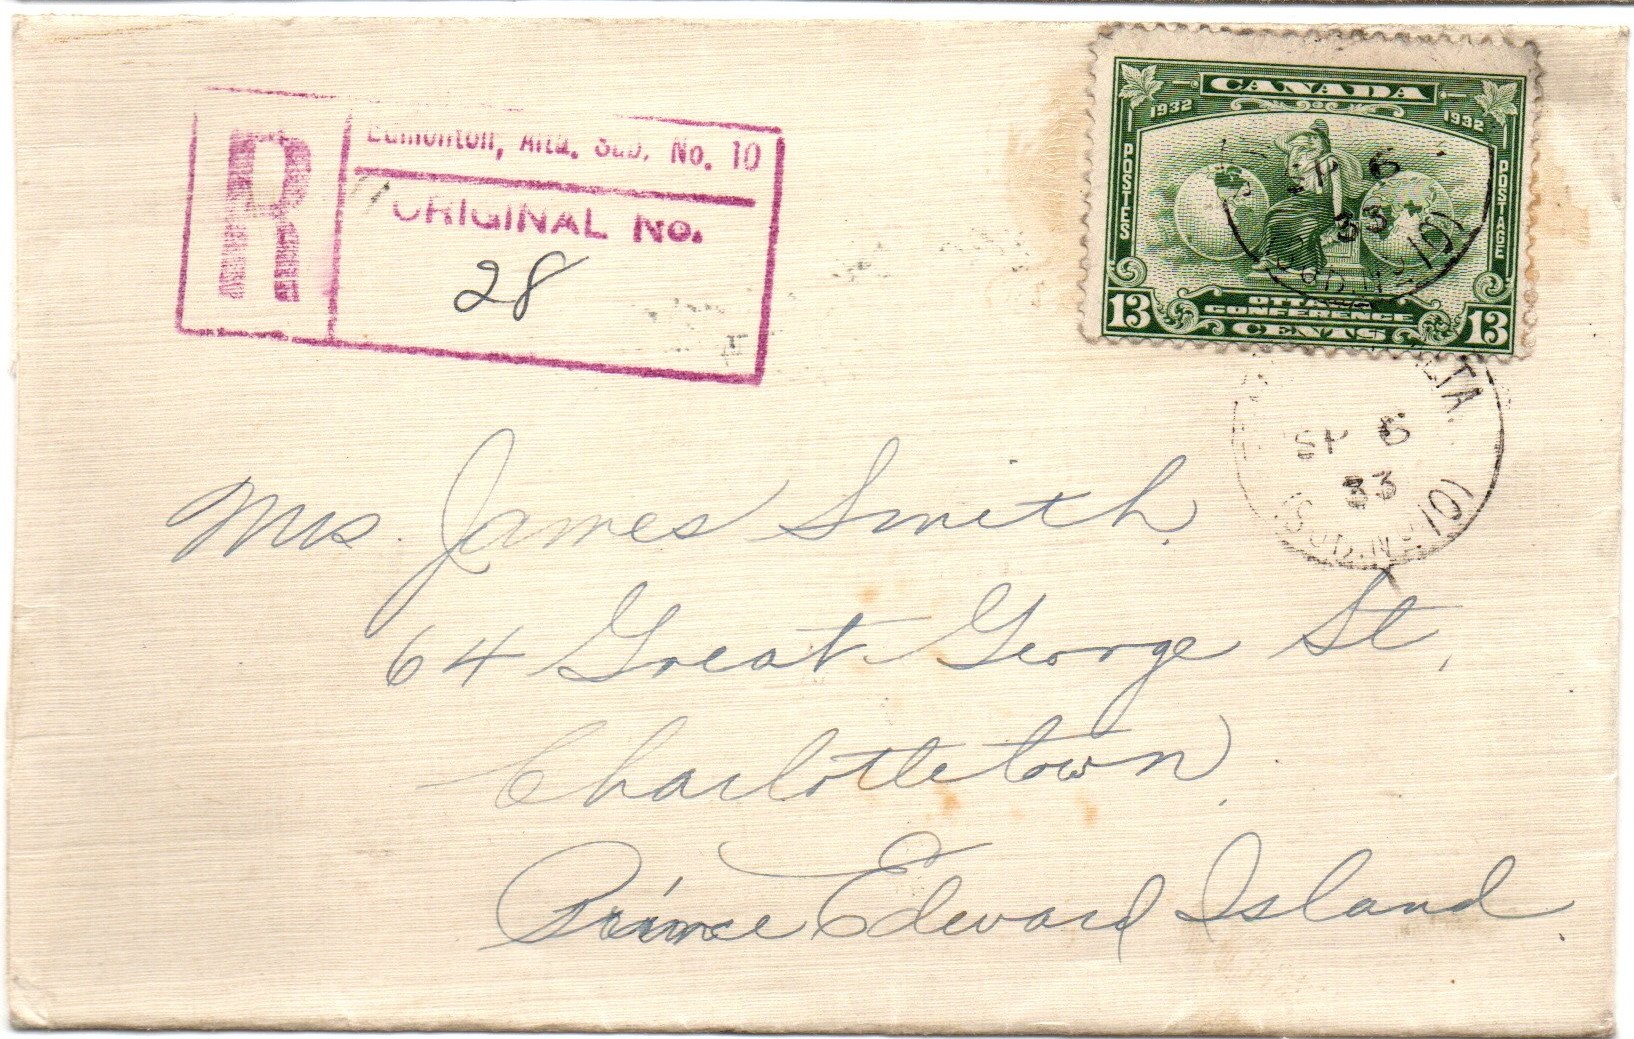 R
Edmonton, Alta. Sub. No. 10
ORIGINAL No.
28
CANADA
1932 1932
POSTES POSTAGE
13 OTTAWA 13
CONFERENCE
CENTS
SP 6
33
(SUB. No 10)
ALTA.
SP 6
33
(SUB. No 10)
Mrs. James Smith,
64 Great George St,
Charlottetown,
Prince Edward Island.